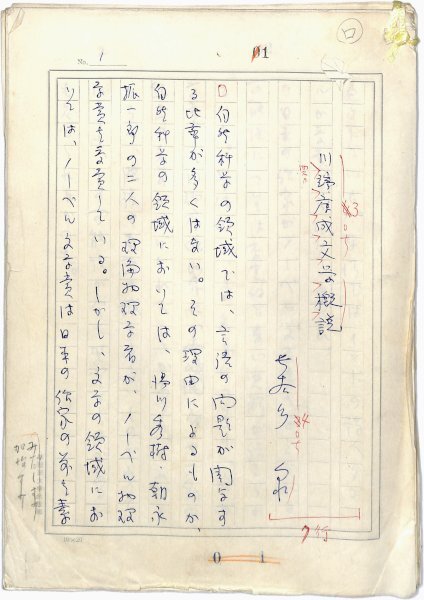 No. 1
01
ロ
川端康成文学概説
長谷川 泉
7行
○自然科学の領域では、言語の問題が関与す
る比重が多くはない。その理由によるものか、
自然科学の領域においては、湯川秀樹・朝永
振一郎の二人の理論物理学者が、ノーベル物理
学賞を受賞している。しかし、文学の領域にお
いては、ノーベル文学賞は日本の作家の前を素
0 1